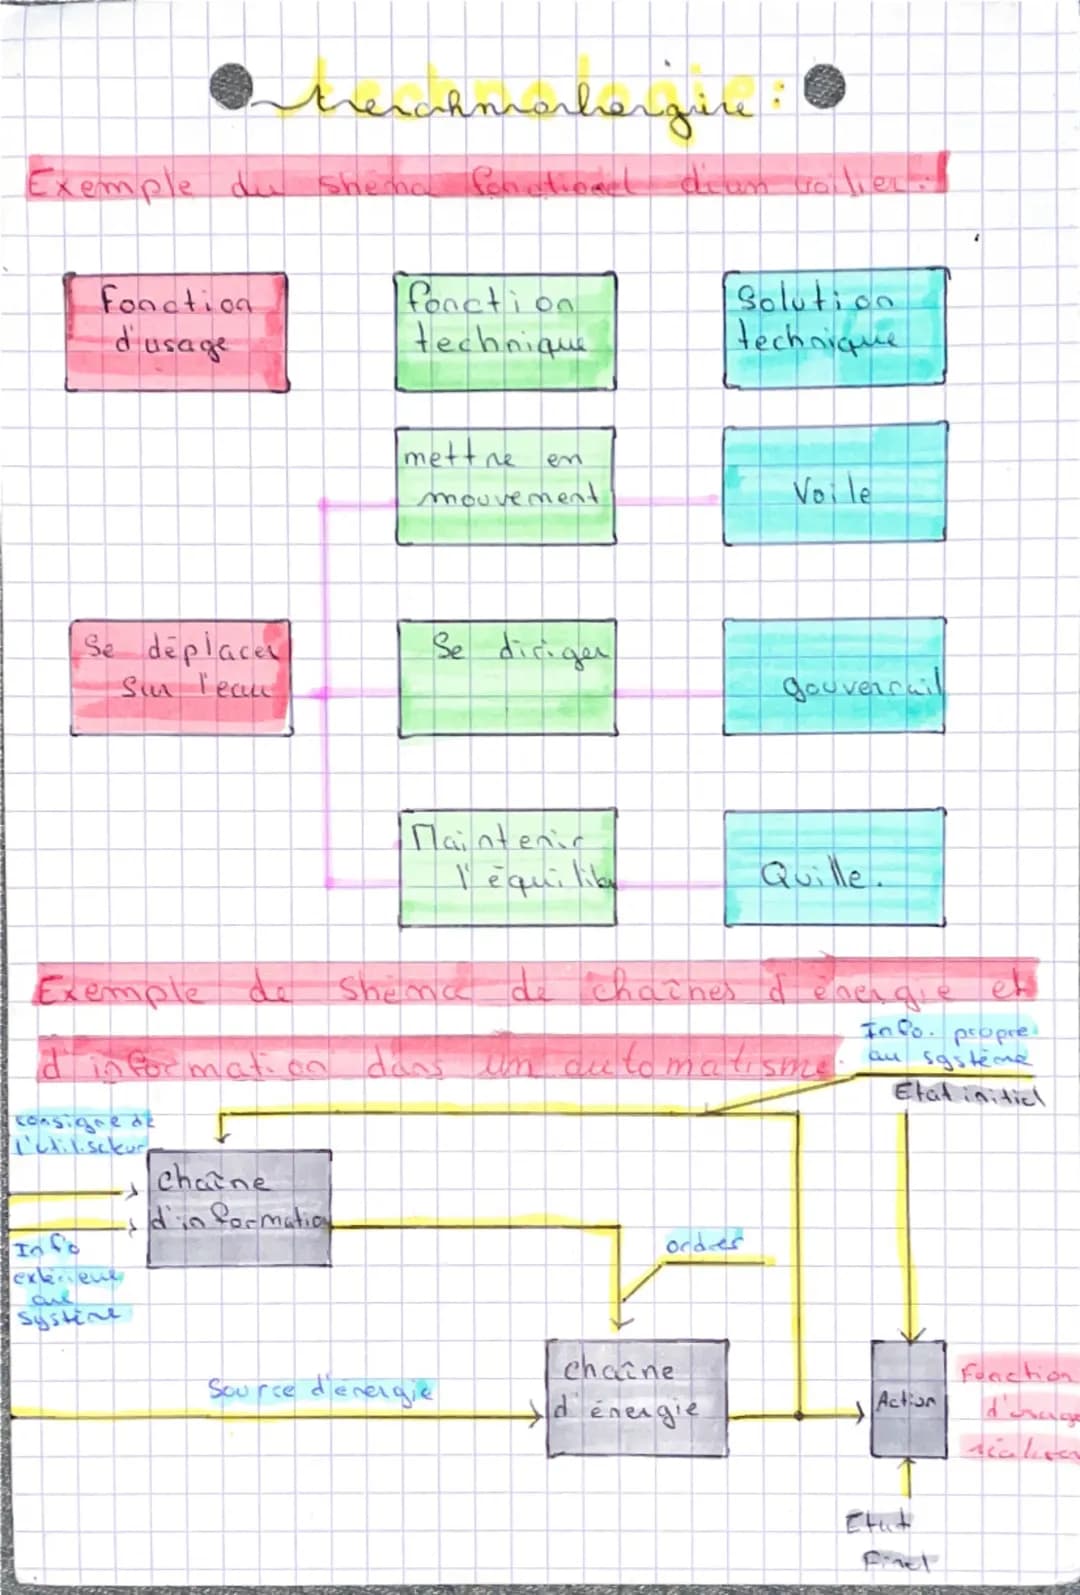 technologie :
Exemple du shema fonctionel d'un voilier :
Fonction
d'usage
fonction
technique
Solution
technique
mettre en
mouvement
Voile
Se déplacer
sur l'eau
Se diriger
gouvernail
Maintenir
l'équilibre
Quille.
Exemple de shema de chaînes d'énergie et
d'information dans un automatisme.
Info. propre
au système
Etat initiel
consigne de
l'utilisateur
chaîne
d'information
Info
extérieure
au
système
ordres
Source d'énergie
chaîne
d'énergie
Action
Fonction
d'usage
Etat
Finel